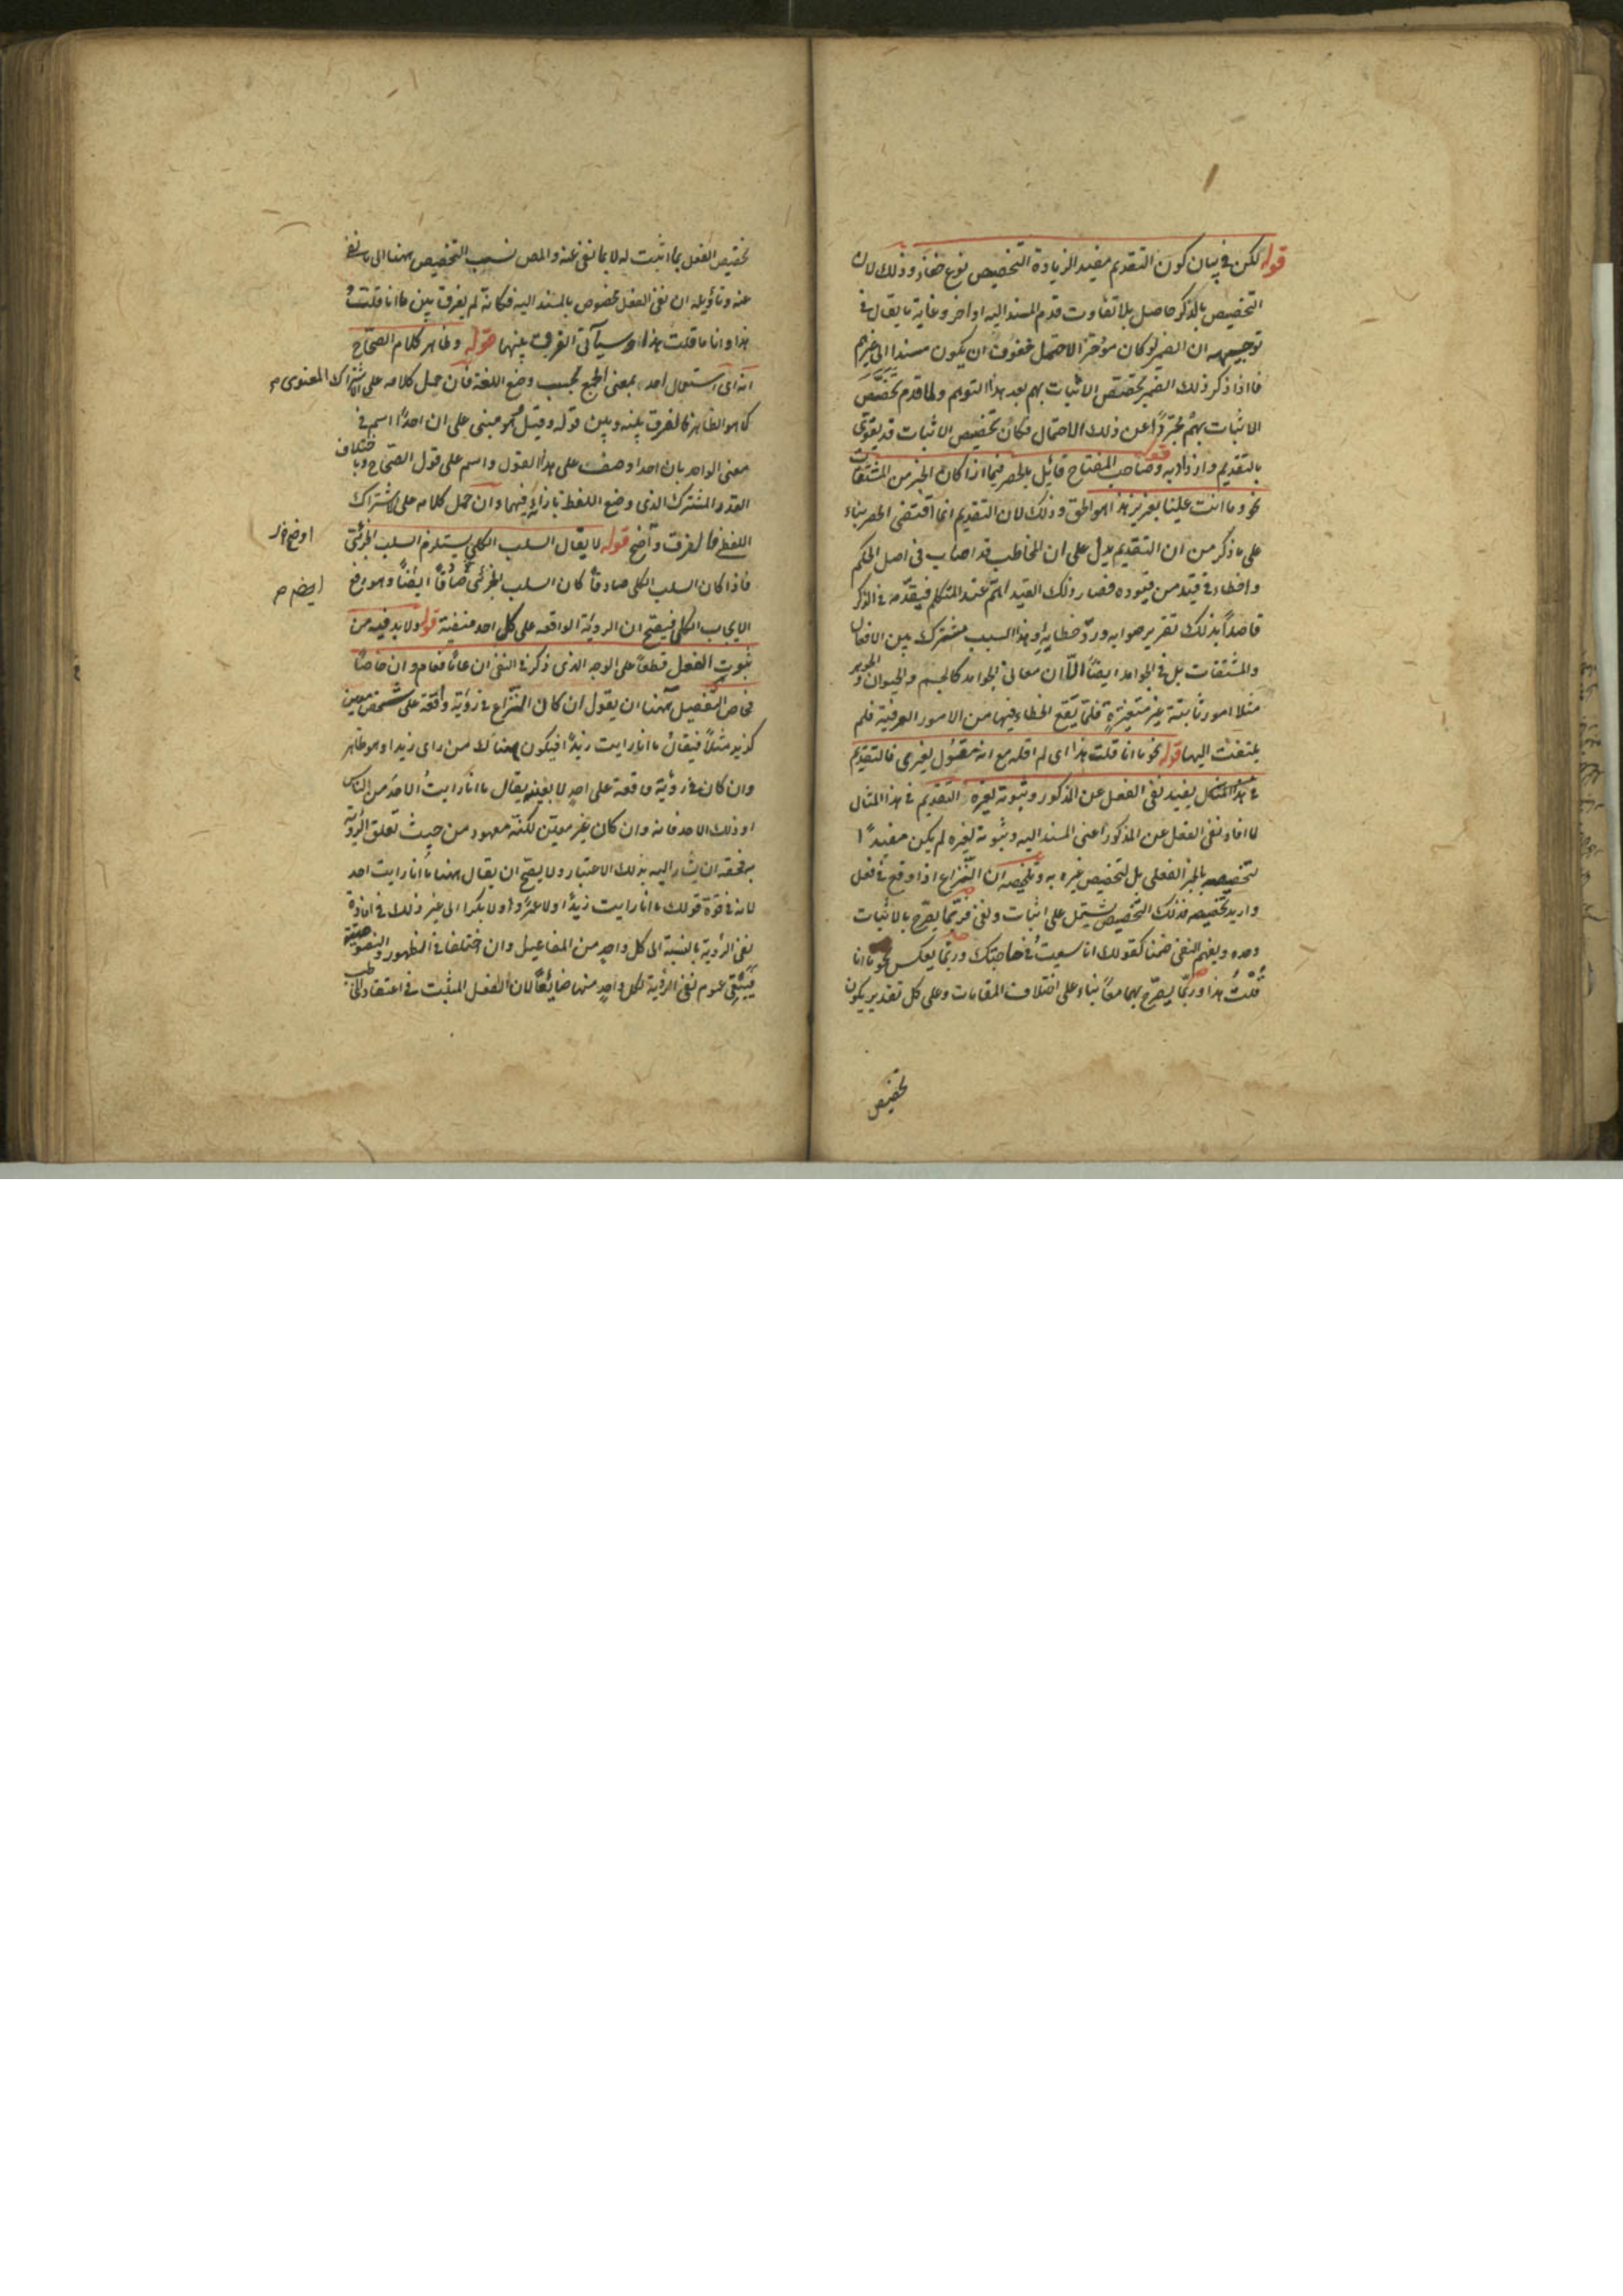 قوله لكن في بيان كون التقديم مفيد الزيادة التخصيص نوع خفاء وذلك لان
التخصيص بالذكر حاصل بلا تفاوت قدم المسند اليه او اخر وغاية ما يقال في
توجيهه ان الضمير لو كان مؤخرا لاحتمل خفوف ان يكون مسندا الى غيرهم
فاذا ذكر ذلك الضمير تخصص الاثبات بهم بعد هذا التوهم ولما قدم تخصص
الاثبات بهم مجردا عن ذلك الاحتمال فكان تخصيص الاثبات قد يقوى
بالتقديم وازداد به قوله وصاحب المفتاح قائل بالحصر فيما اذا كان الخبر من المشتقات
نحو وما انت علينا بعزيز هذا هو الحق وذلك لان التقديم انما اقتضى الحصر بناء
على ما ذكر من ان التقديم يدل على ان المخاطب قد اصاب في اصل الحكم
واخطاء في قيد من قيوده فصار ذلك القيد اهم عند المتكلم فيقدمه في الذكر
قاصدا بذلك تقرير صوابه ورد خطايه وهذا السبب مشترك بين الافعال
والمشتقات بل في الجوامد ايضا الا ان معاني الجوامد كالجسم والحيوان والجوهر
مثلا امور ثابتة غير متغيرة قلما يقع الخطاء فيها من الامور العرفية فلم
يلتفت اليها قوله نحو ما انا قلت هذا اى لم اقله مع انه مقول لغيرى فالتقديم
في هذا الشكل يفيد نفى الفعل عن المذكور وثبوته لغيره التقديم في هذا المثال
لما افاد نفى الفعل عن المذكور اعنى المسند اليه وثبوته لغيره لم يكن مفيدا
لتخصيصه بالخبر الفعلى بل لتخصيص غيره به وتلخيصه ان النزاع اذا وقع في فعل
واريد تخصيصه فذلك التخصيص يشتمل على اثبات ونفى فربما يصرح بالاثبات
وحده ويفهم النفى ضمنا كقولك انا سعيت في حاجتك وربما يعكس نحو ما انا
قلت هذا وربما يصرح بهما معا بناء على اختلاف المقامات وعلى كل تقدير يكون
تخصيص
تخصيص الفعل بما اثبت له لا بما نفى عنه والمص نسب التخصيص ههنا الى ما نفى
عنه وتأويله ان نفى الفعل مخصوص بالمسند اليه فكانه لم يفرق بين ما انا قلت
هذا وانا ما قلت هذا وسيأتى الفرق بينهما قوله وظاهر كلام الصحاح
انه اى استعمال احد بمعنى الجمع بحسب وضع اللغة فان حمل كلامه على الاشتراك المعنوى
كما هو الظاهر فالفرق بينه وبين قوله وقيل هو مبنى على ان احدا اسم في
معنى الواحد بان احدا وصف على هذا القول واسم على قول الصحاح وباختلاف
القدر المشترك الذى وضع اللفظ بازائه فيهما وان حمل كلامه على الاشتراك
اللفظى فالفرق واضح قوله لا يقال السلب الكلى يستلزم السلب الجزئى
فاذا كان السلب الكلى صادقا كان السلب الجزئى صادقا ايضا وهو رفع
الايجاب الكلى فيصح ان الرؤية الواقعه على كل احد منفية قوله ولا بد فيه من
ثبوت الفعل قطعا على الوجه الذى ذكر في النفى ان عاما فعام وان خاصا
فخاص التفصيل ههنا ان يقول ان كان النزاع في رؤية واقعة على شخص معين
كزيد مثلا فيقال ما انا رايت زيدا فيكون هناك من راى زيدا وهو ظاهر
وان كان في رؤية واقعة على احد لا بعينه يقال ما انا رايت الاحد من الناس
او ذلك الاحد فانه وان كان غير معين لكنه معهود من حيث تعلق الرؤية
به فحقه ان يشار اليه بذلك الاعتبار ولا يصح ان يقال ههنا ما انا رايت احد
لانه في قوة قولك ما انا رايت زيدا ولا عمروا ولا بكرا الى غير ذلك في افادة
نفى الرؤية بالنسبة الى كل واحد من المفاعيل وان اختلفا في الظهور والنصوصية
فيبقى عموم نفى الرؤية لكل واحد منها ضايعا لان الفعل المثبت في اعتقاد المخاطب